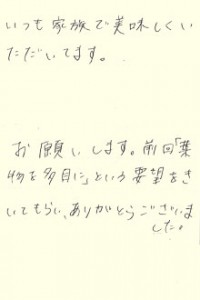 いつも家族で美味しくい
ただいてます。
お願いします。前回「葉
物を多目に」という要望をき
いてもらい、ありがとうございま
した。